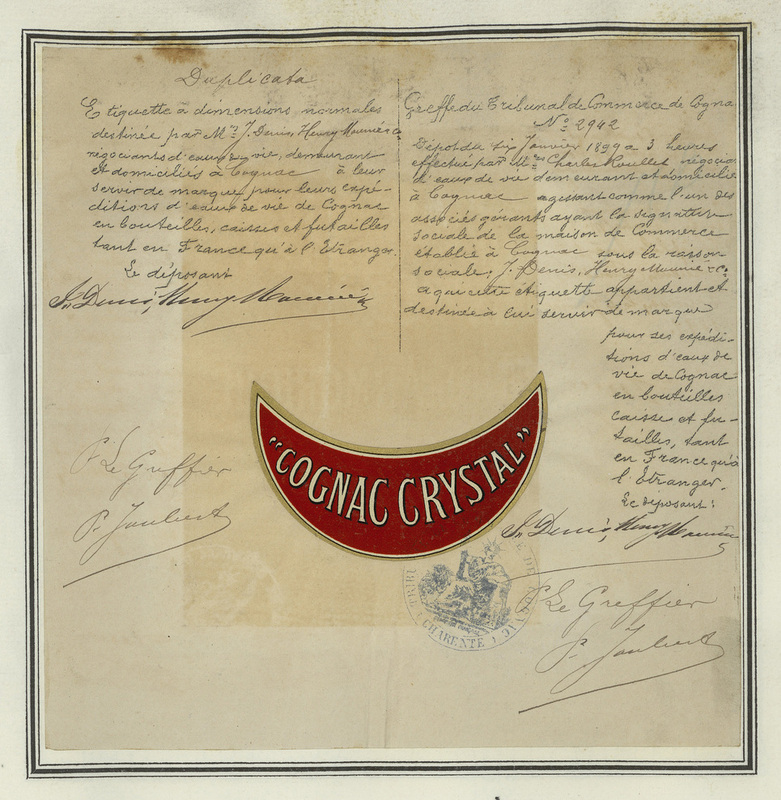 Duplicata
Etiquette à dimensions normales
destinée par Mrs J. Denis, Henry Mounié & Co
négociants d'eaux de vie, demeurant
et domiciliés à Cognac à leur
servir de marque pour leurs expé-
ditions d'eaux de vie de Cognac
en bouteilles, caisses et futailles
tant en France qu'à l'Etranger.
Le déposant
Jn Denis, Henry Mounié
P. Le Greffier
P. Joubert
Greffe du Tribunal de Commerce de Cognac
No 2942
Dépot du six Janvier 1899 à 3 heures
effectué par Mr Charles Roullet négociant
d'eaux de vie demeurant et domicilié
à Cognac agissant comme l'un des
associés gérants ayant la signature
sociale de la maison de Commerce
établie à Cognac sous la raison
sociale, J. Denis, Henry Mounié & Co.
a qui cette étiquette appartient et
destinée à lui servir de marque
pour ses expédi-
tions d'eaux de
vie de Cognac
en bouteilles
caisses et fu-
tailles, tant
en France qu'à
l'Etranger.
Le déposant:
Jn Denis, Henry Mounié
"COGNAC CRYSTAL"
CHARENTE
P. Le Greffier
P. Joubert